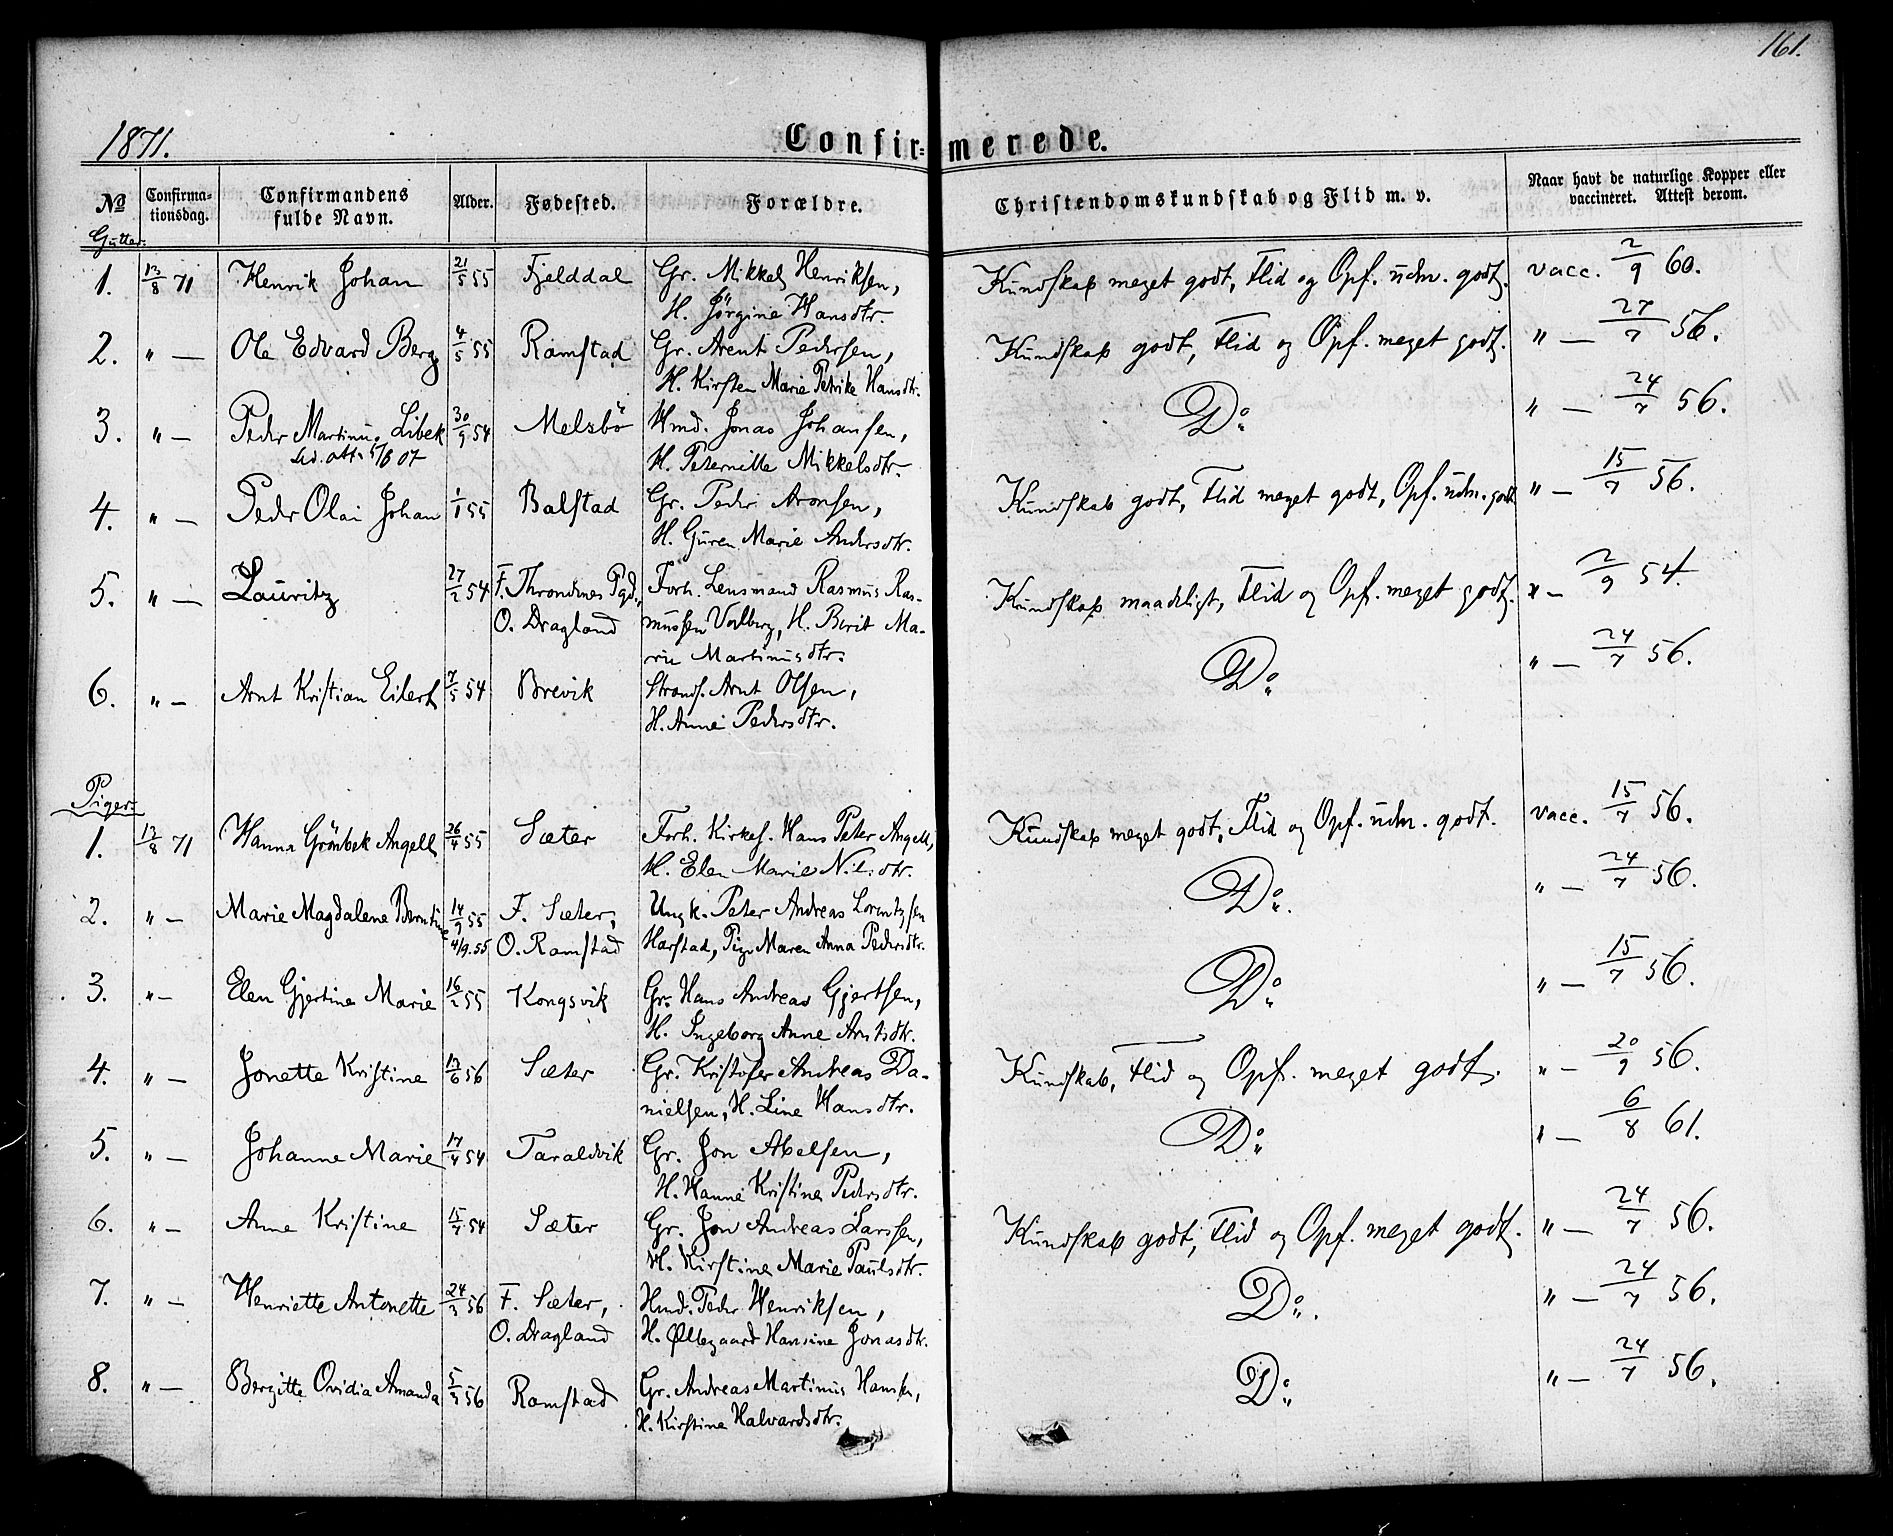 161.
1871.
Confirmerede.
No
Confirmationsdag.
Confirmandens fulde Navn.
Alder.
Fødested.
Forældre.
Christendomskundskab og Flid m. v.
Naar havt de naturlige Kopper eller vaccineret. Attest derom.
Gutter:
1. 13/8 71 Henrik Johan 21/5 55 Fjelddal Gr. Mikkel Henriksen, Kundskab meget godt, Flid og Opf. udm. godt. vacc. 2/9 60.
H. Jörgine Hansdtr.
2. " — Ole Edvard Berg 4/5 55 Ramstad Gr. Arent Pedersen, Kundskab godt, Flid og Opf. meget godt. " — 27/7 56.
H. Kirsten Marie Petrike Hansdtr.
3. " — Peder Martinus Libek 30/9 54 Melsbö Hmd. Jonas Johansen, Do " — 24/7 56.
ud. att. 5/6 07 H. Peternille Mikkelsdtr.
4. " — Peder Olai Johan 1/1 55 Balstad Gr. Peder Aronsen, Kundskab godt, Flid meget godt, Opf. udm. godt " — 15/7 56.
H. Guren Marie Andersdtr.
5. " — Lauritz 27/2 54 F. Throndenes Pgd., Forh. Lensmand Rasmus Ras- Kundskab maadeligt, Flid og Opf. meget godt. " — 2/9 54.
O. Dragland mussen Volberg, H. Berit Ma-
rie Martinusdtr.
6. " — Arnt Kristian Eilert 7/5 54 Brevik Strands. Arnt Olsen, Do " — 24/7 56.
H. Anne Pedersdtr.
Piger:
1. 13/8 71 Hanna Grönbek Angell 26/4 55 Sæter Forh. Kirkes. Hans Peter Angell, Kundskab meget godt, Flid og Opf. udm. godt. vacc. 15/7 56.
H. Elen Marie Nilsdtr.
2. " — Marie Magdalene Berntine 14/9 55 F. Sæter, Ungk. Peter Andreas Lorentzsen Do. " — 24/7 56.
4/9.55 O. Ramstad Harstad, Pige Maren Anna Pedersdtr.
3. " — Elen Gjertine Marie 16/2 55 Kongsvik Gr. Hans Andreas Gjertsen, Do " — 15/7 56.
H. Ingeborg Anne Arntsdtr.
4. " — Jonette Kristine 13/6 56 Sæter Gr. Kristofer Andreas Da- Kundskab, Flid og Opf. meget godt. " — 20/9 56.
nielsen, H. Line Hansdtr.
5. " — Johanne Marie 17/4 54 Taraldvik Gr. Jon Abelsen, Do " — 6/8 61.
H. Hanne Kristine Pedersdtr.
6. " — Anne Kristine 15/7 54 Sæter Gr. Jon Andreas Larssen, Kundskab godt, Flid og Opf. meget godt. " — 24/7 56.
H. Kirstine Marie Paulsdtr.
7. " — Henriette Antonette 24/3 56 F. Sæter, Hmd. Peder Henriksen, Do. " — 24/7 56.
O. Dragland H. Øllegaard Hansine Jonasdtr.
8. " — Bergitte Ovidia Amanda 5/3 56 Ramstad Gr. Andreas Martinus Hansen, Do " — 24/7 56.
H. Kirstine Halvardsdtr.